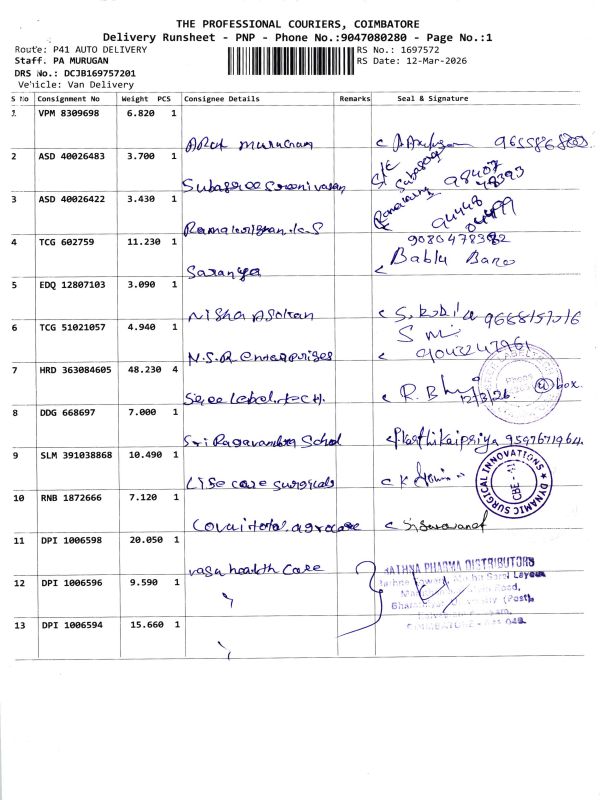 THE PROFESSIONAL COURIERS, COIMBATORE
Delivery Runsheet - PNP - Phone No.:9047080280 - Page No.:1
Route: P41 AUTO DELIVERY
RS No.: 1697572
Staff. PA MURUGAN
RS Date: 12-Mar-2026
DRS No.: DCJB169757201
Vehicle: Van Delivery
S No Consignment No Weight PCS Consignee Details Remarks Seal & Signature
1 VPM 8309698 6.820 1
Arul murugan
2 ASD 40026483 3.700 1
Subasree Sreenivasan
Subasree
98407
48393
3 ASD 40026422 3.430 1
Ramakrishnan.k.S
94448
04499
4 TCG 602759 11.230 1
Saranya
Bablu Bano
5 EDQ 12807103 3.090 1
Nisha Asoltan
6 TCG 51021057 4.940 1
N.S.R Enterprises
9043247961
7 HRD 363084605 48.230 4
Sree label.tech.
12/3/26
4 box.
8 DDG 668697 7.000 1
Sri Ragavandra School
Karthikaipriya 9597671964.
9 SLM 391038868 10.490 1
Life care surgicals
DYNAMIC SURGICAL INNOVATIONS
CBE
10 RNB 1872666 7.120 1
Covai total agrocare
11 DPI 1006598 20.050 1
vasa health care
RATHNA PHARMA DISTRIBUTORS
12 DPI 1006596 9.590 1
"
13 DPI 1006594 15.660 1
"